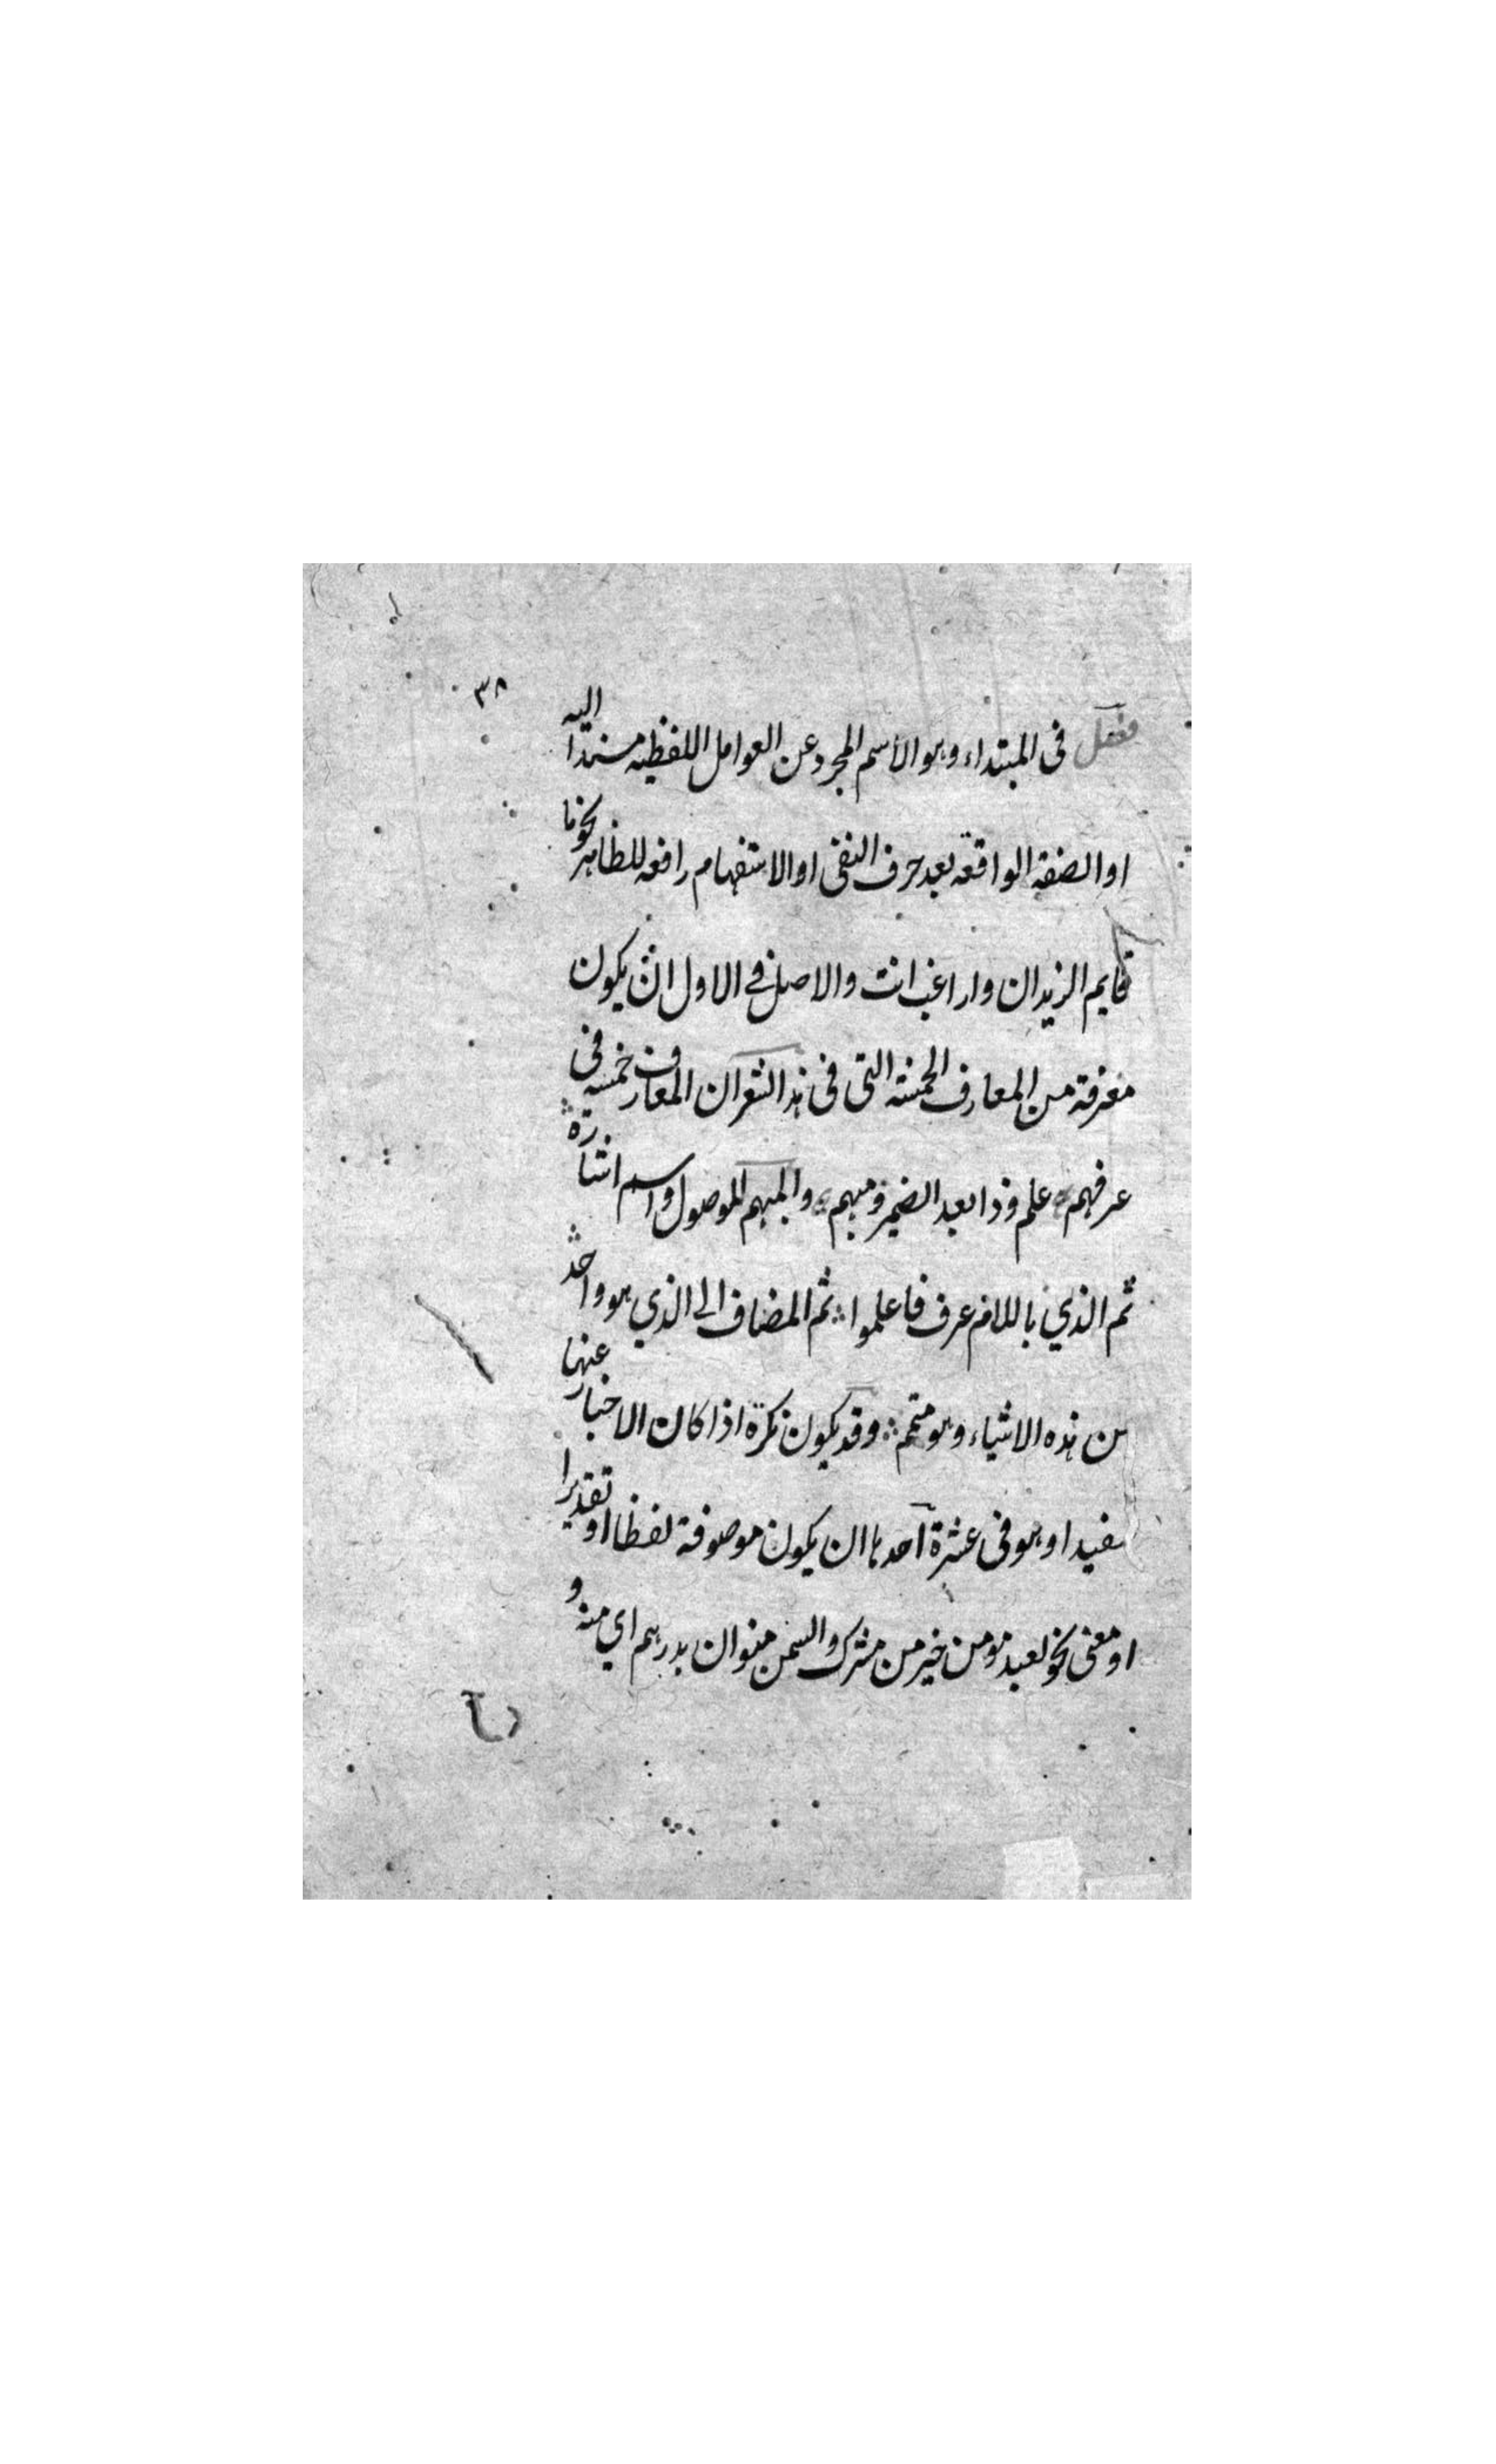 ٣٨
فصل فى المبتداء وهو الاسم المجرد عن العوامل اللفظيه مسندا اليه
او الصفة الواقعه بعد حرف النفى او الاستفهام رافعه للظاهر نحو ما
قايم الزيدان واراغب انت والاصل فى الاول ان يكون
معرفة من المعارف الخمسة التى فى هذا الشعر ان المعارف خمسه فى
عرفهم علم وذا بعد الضمير ومبهم والمبهم الموصول واسم اشارة
ثم الذي باللام عرف فاعلموا ثم المضاف الى الذي هو واحد
من هذه الاشياء وهو متمم وقد يكون نكرة اذا كان الاخبار عنها
مفيدا وهو فى عشرة احدها ان يكون موصوفة لفظا او تقديرا
او معنى نحو لعبد مومن خير من مشرك والسمن منوان بدرهم اي منه و